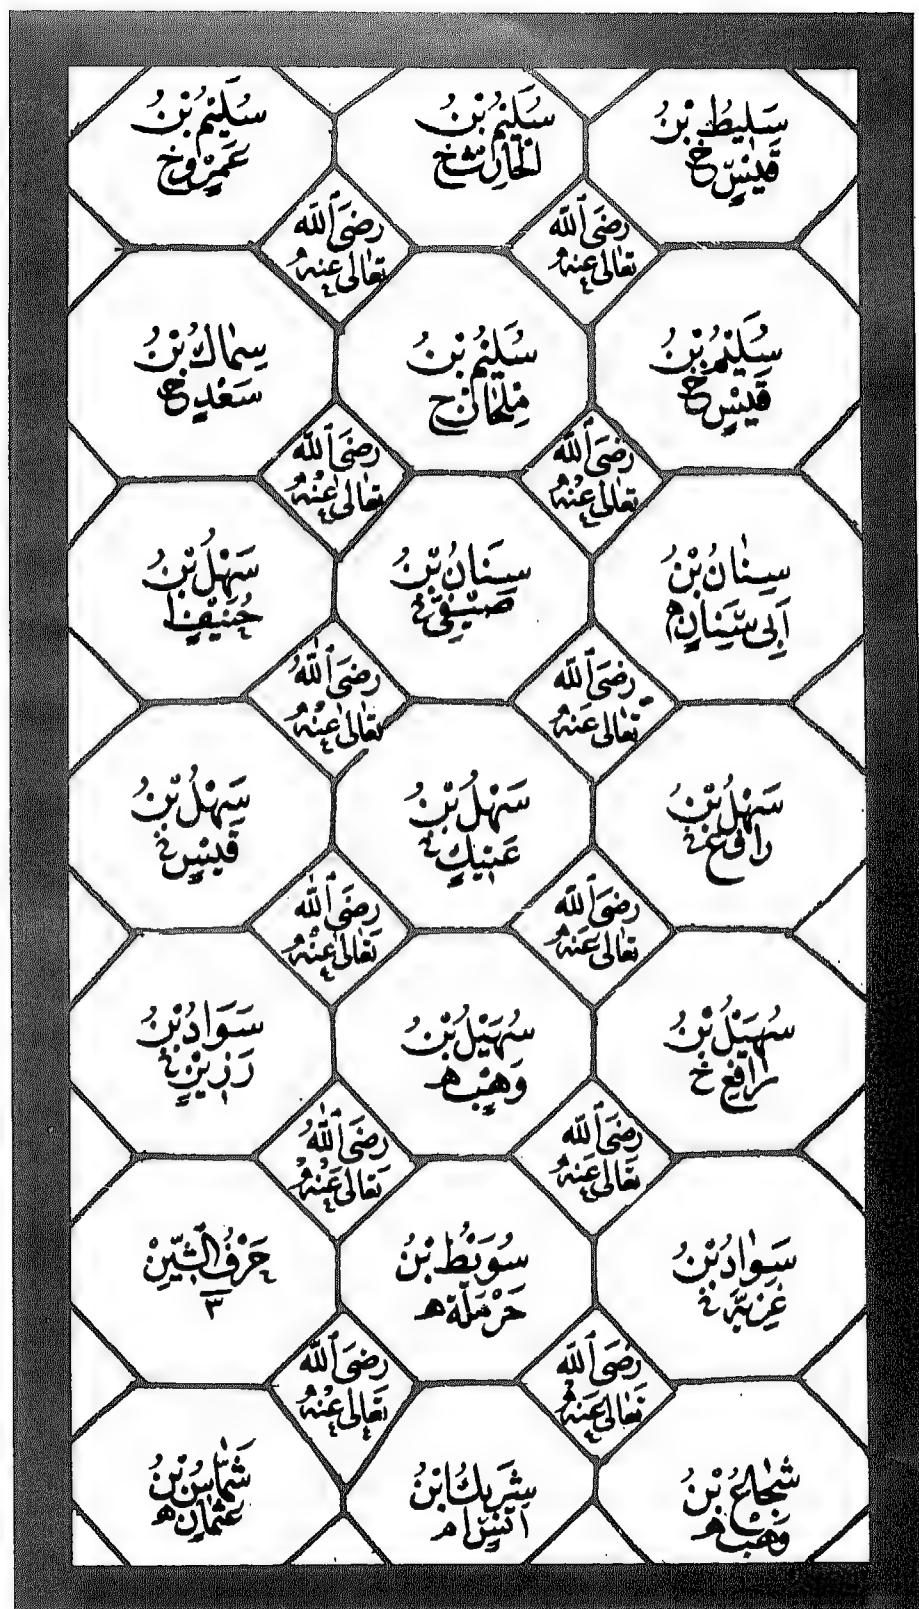 سَلِيطُ بْنُ
قَيْسٍ خ
سُلَيْمُ بْنُ
الْحَارِثِ خ
سُلَيْمُ بْنُ
عَمْرٍو خ
رَضِیَ اللّٰه
تَعَالٰی عَنْهُ
رَضِیَ اللّٰه
تَعَالٰی عَنْهُ
سُلَيْمُ بْنُ
قَيْسٍ خ
سُلَيْمُ بْنُ
مِلْحَانَ خ
سِمَاكُ بْنُ
سَعْدٍ خ
رَضِیَ اللّٰه
تَعَالٰی عَنْهُ
رَضِیَ اللّٰه
تَعَالٰی عَنْهُ
سِنَانُ بْنُ
اَبِی سِنَانٍ ه
سِنَانُ بْنُ
صَيْفِیٍّ خ
سَهْلُ بْنُ
حُنَيْفٍ ا
رَضِیَ اللّٰه
تَعَالٰی عَنْهُ
رَضِیَ اللّٰهُ
تَعَالٰی عَنْهُ
سَهْلُ بْنُ
رَافِعٍ خ
سَهْلُ بْنُ
عَتِيكٍ خ
سَهْلُ بْنُ
قَيْسٍ خ
رَضِیَ اللّٰه
تَعَالٰی عَنْهُ
رَضِیَ اللّٰه
تَعَالٰی عَنْهُ
سُهَيْلُ بْنُ
رَافِعٍ خ
سُهَيْلُ بْنُ
وَهْبٍ ه
سَوَادُ بْنُ
رَزِيْنٍ خ
رَضِیَ اللّٰه
تَعَالٰی عَنْهُ
رَضِیَ اللّٰهُ
تَعَالٰی عَنْهُ
سَوَادُ بْنُ
غَزِيَّةَ خ
سُوَيْبِطُ بْنُ
حَرْمَلَةَ ه
حَرْفُ الشِّيْنِ
٣
رَضِیَ اللّٰه
تَعَالٰی عَنْهُ
رَضِیَ اللّٰه
تَعَالٰی عَنْهُ
شُجَاعُ بْنُ
وَهْبٍ ه
شَرِيكُ ابْنُ
اَنَسٍ ا م
شَمَّاسُ بْنُ
عُثْمَانَ ه